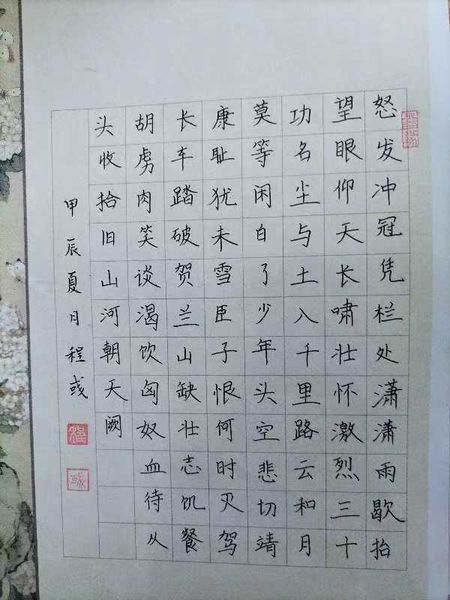 怒发冲冠凭栏处潇潇雨歇抬
望眼仰天长啸壮怀激烈三十
功名尘与土八千里路云和月
莫等闲白了少年头空悲切靖
康耻犹未雪臣子恨何时灭驾
长车踏破贺兰山缺壮志饥餐
胡虏肉笑谈渴饮匈奴血待从
头收拾旧山河朝天阙
甲辰夏日程彧